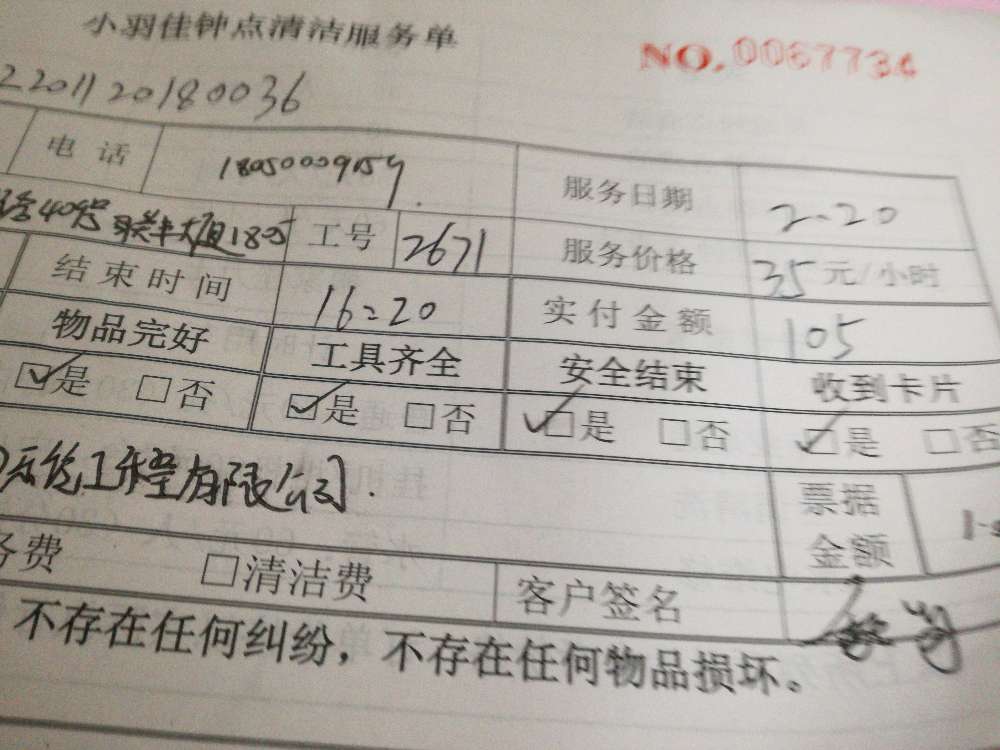 小羽佳钟点清洁服务单
NO. 0067734
2201120180036
电话 18050009159 服务日期 2-20
路409号 联丰大厦1805 工号 2671 服务价格 35 元/小时
结束时间 16:20 实付金额 105
物品完好 工具齐全 安全结束 收到卡片
☑是 □否 ☑是 □否 ☑是 □否 ☑是 □否
工程有限公司. 票据金额
务费 □清洁费 客户签名
不存在任何纠纷，不存在任何物品损坏。